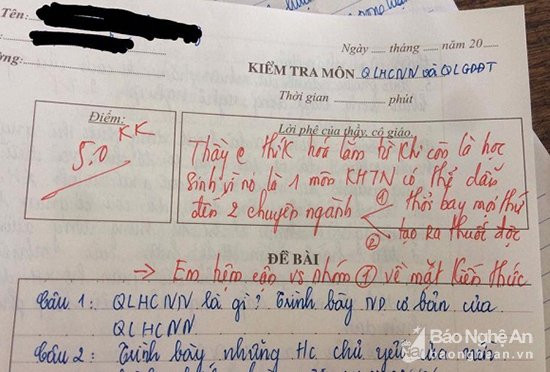 Tên:
Ngày ...... tháng ...... năm 20......
ờng:
KIỂM TRA MÔN QLHCNN và QLGDĐT
Thời gian ............ phút
Điểm:
5,0 KK
Lời phê của thầy, cô giáo
Thầy e thík hoá lắm từ khi còn là học
sinh vì nó là 1 môn KHTN có thể dẫn
đến 2 chuyên ngành ① thổi bay mọi thứ
② tạo ra thuốc độc
ĐỀ BÀI
→ Em hôm cận vs nhóm ① về mặt kiến thức
Câu 1: QLHCNN là gì? Trình bày ND cơ bản của
QLHCNN
Câu 2: Trình bày những Hc chủ yếu
Báo Nghệ An
baonghean.vn